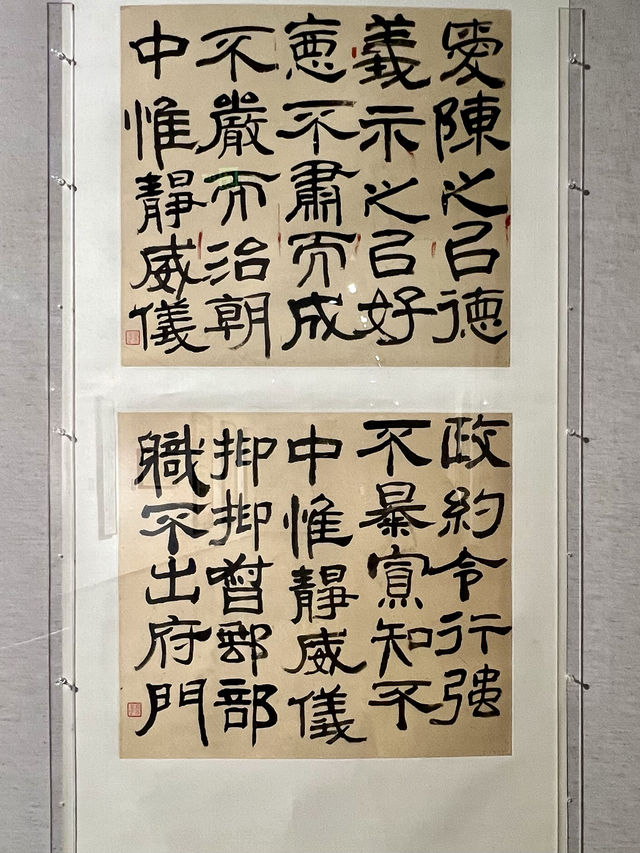 愛陳之以德
義示之以好
惡不肅而成
不嚴而治朝
中惟靜威儀
政約令行強
不暴寡知不
中惟靜威儀
抑抑督郵部
職不出府門